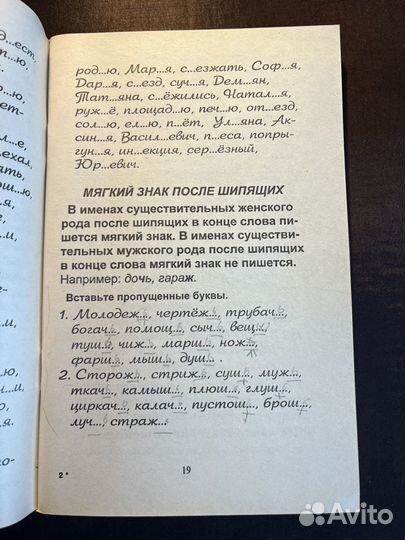 д...ест,
т...ю,
...я.
...ю,
...ет-
...е,
ъехал,
...ать,
рош...ю,
...м,
...и,
...м,
...о-
род...ю, Мар...я, с...езжать, Соф...я,
Дар...я, с...езд, суч...я, Дем...ян,
Тат...яна, с...ёжились, Натал...я,
руж...ё, площад...ю, печ...ю, от...езд,
сол...ю, ел...ю, п...ёт, Ул...яна, Ак-
син...я, Васил...евич, п...еса, попры-
гун...я, ин...екция, сер...ёзный,
Юр...евич.
МЯГКИЙ ЗНАК ПОСЛЕ ШИПЯЩИХ
В именах существительных женского
рода после шипящих в конце слова пи-
шется мягкий знак. В именах существи-
тельных мужского рода после шипящих
в конце слова мягкий знак не пишется.
Например: дочь, гараж.
Вставьте пропущенные буквы.
1. Молодеж..., чертёж..., трубач...,
богач..., помощ..., сыч..., вещ...,
туш..., чиж..., марш..., нож...,
фарш..., мыш..., душ... .
2. Сторож..., стриж..., суш..., муж...,
ткач..., камыш..., плюш..., глуш...,
циркач..., калач..., пустош..., брош...,
луч..., страж...
2*
19
Avito